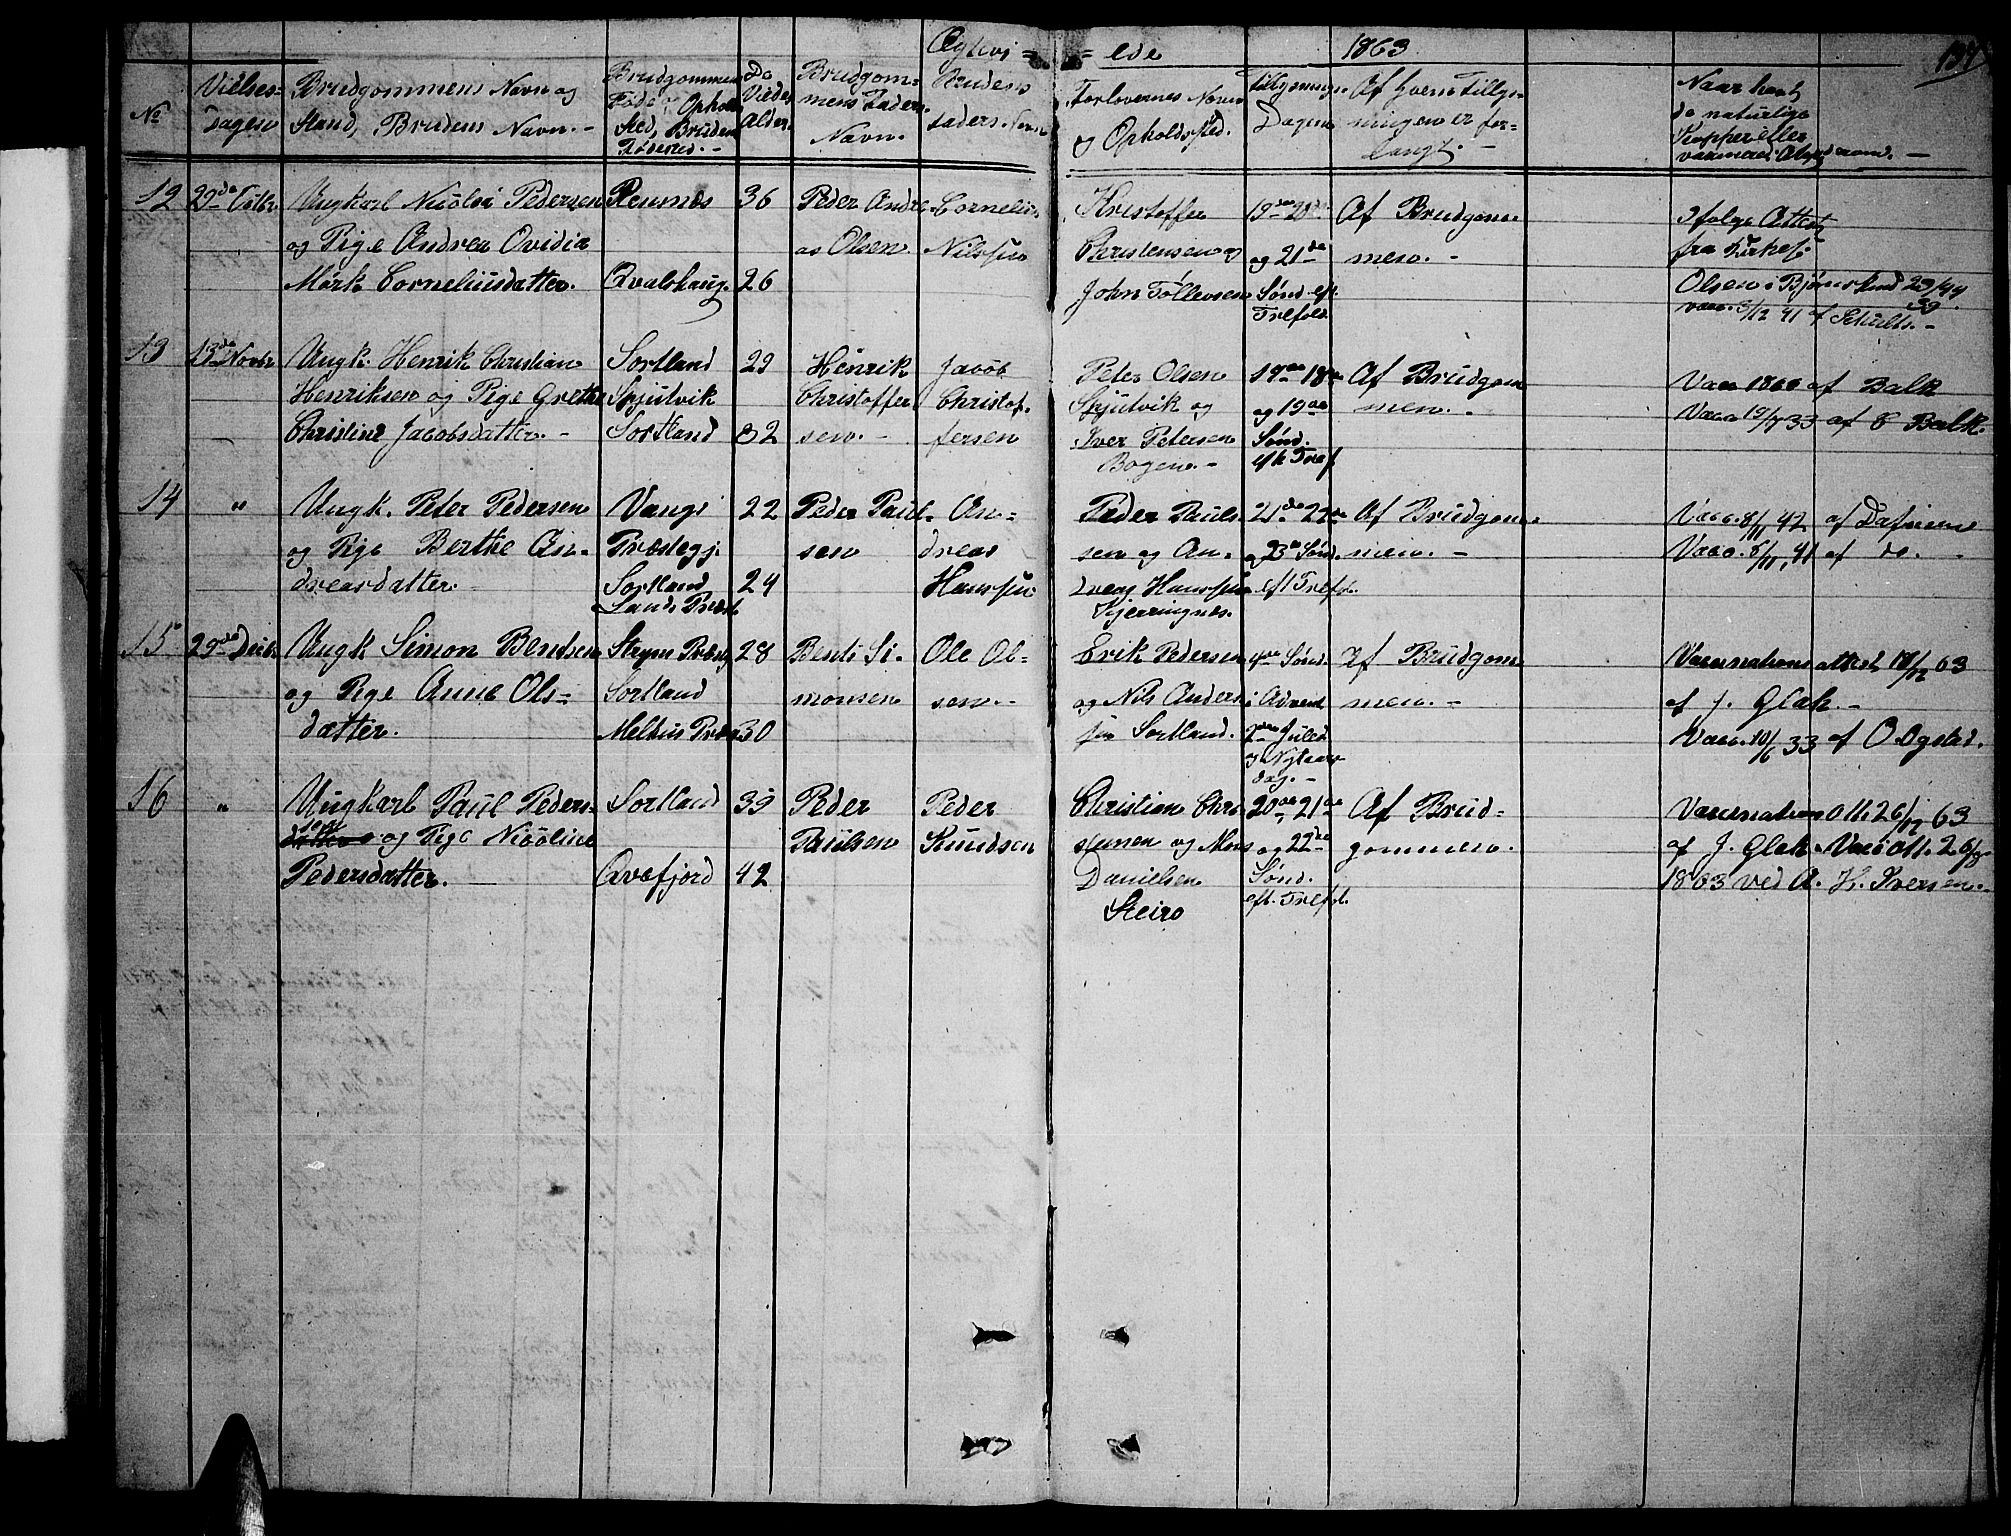 Ægtevi= =ede 1863
No
Vielses-
Dagen
Brudgommens Navn og
Stand, Brudens Navn. -
Brudgommens
Føde og Opholds
Sted, Brudens
Fødested. -
De
Viedes
Alder.
Brudgom=
mens Faders
Navn.
Brudens
Faders Navn
Forlovernes Navn
og Opholdssted.
Tillysnings-
Dagene
Af hvem Tillys-
ningen er for-
langt. -
Naar havt
de naturlige
Kopper eller
vaccineret
12 29de Octbr
Ungkarl Nicolai Pedersen
og Pige Andrea Ovidia
Mørk Corneliusdatter.
Reinnæs
Qvalshaug.
36
26
Peder Andre-
as Olsen
Cornelius
Nilssen
Kristoffer
Christensen og
John Tollevsen
19de 20de
og 21de
Sønd. eft.
Trefold.
Af Brudgom-
men. -
Ifølge Attest
fra Kirkes.
Olsen i Bjørnskind 29/44
39
Vacc. 3/12 41 af Schults. -
13 13de Novbr
Ungk. Henrik Christian
Henriksen og Pige Grethe
Christine Jacobsdatter. -
Sortland
Spjutvik
Sortland
32
Henrik
Christoffer
sen. -
Jacob
Christof-
fersen
Peter Olsen
Spjutvik og
Iver Petersen
Bogen. -
17de 18de
og 19de
Sønd.
eft Tref
Af Brudgom
men. -
Vacc 1860 af Balk
Vacc 19/7 33 af C Balk.
14 "
Ungk. Peter Pedersen
og Pige Berthe An-
dreasdatter. -
Vangs
Præstegj.
Sortland
Sands Præst.
22
24
Peder Paul-
sen
An-
dreas
Hanssen
Peder Pauls-
sen og An-
dreas Hanssen
Kjerringnes.
21de 22de
og 23de Sønd.
eft Trefol.
Af Brudgom-
men. -
Vacc. 8/11 42 af Dafinene
Vacc. 8/11 41 af do. -
15 29de Decbr
Ungk Simon Bentsen
og Pige Anne Ols-
datter.
Stryns Præstg
Sortland
Meldus Præs
28
30
Bent Si-
monsen
Ole Ol-
sen. -
Erik Pedersen
og Nils Anders-
sen Sortland.
4de Sønd.
i Advent
2den Juled
og Nytaars
dag. -
Af Brudgom
men. -
Vaccinationsattest 17/12 63
af J. Glak. -
Vacc. 10/6 33 af O Ogstad.
16 "
Ungkarl Paul Peders-
sen og Pige Nicoline
Pedersdatter. -
Sortland
Qvæfjord
39
42
Peder
Paulsen
Peder
Knudsen
Christian Chri
stensen og Mons
Danielsen
Steiro
20de 21de
og 22de
Sønd.
eft. Trefol.
Af Brud-
gommen.
Vaccination att. 26/12 63
af J. Glak. Vacc att. 26/12
1863 ved A. H. Iversen. -